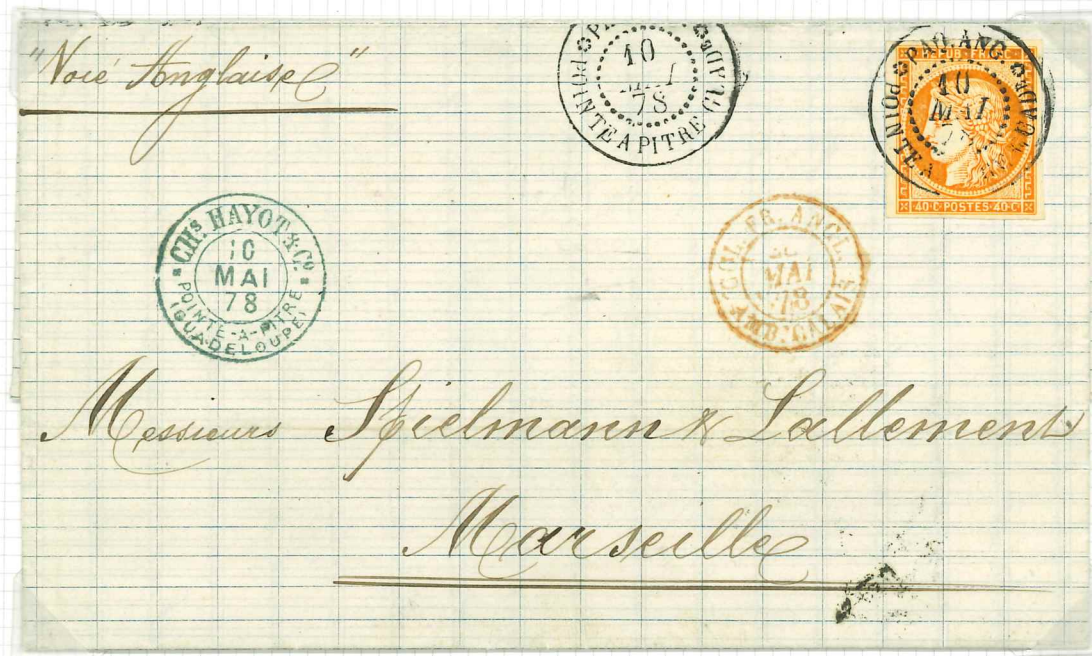 "Voie Anglaise"
10
MAI
78
POINTE A PITRE GUADE
PAQ. ANG.
10
MAI
POINTE A
REPUB. FRANC.
40·C·POSTES·40·C·
CHS. HAYOT & Co.
10
MAI
78
POINTE-A-PITRE
(GUADELOUPE)
COL. FR. ANGL.
MAI
78
AMB. CALAIS
Messieurs Spielmann & Lallement
Marseille